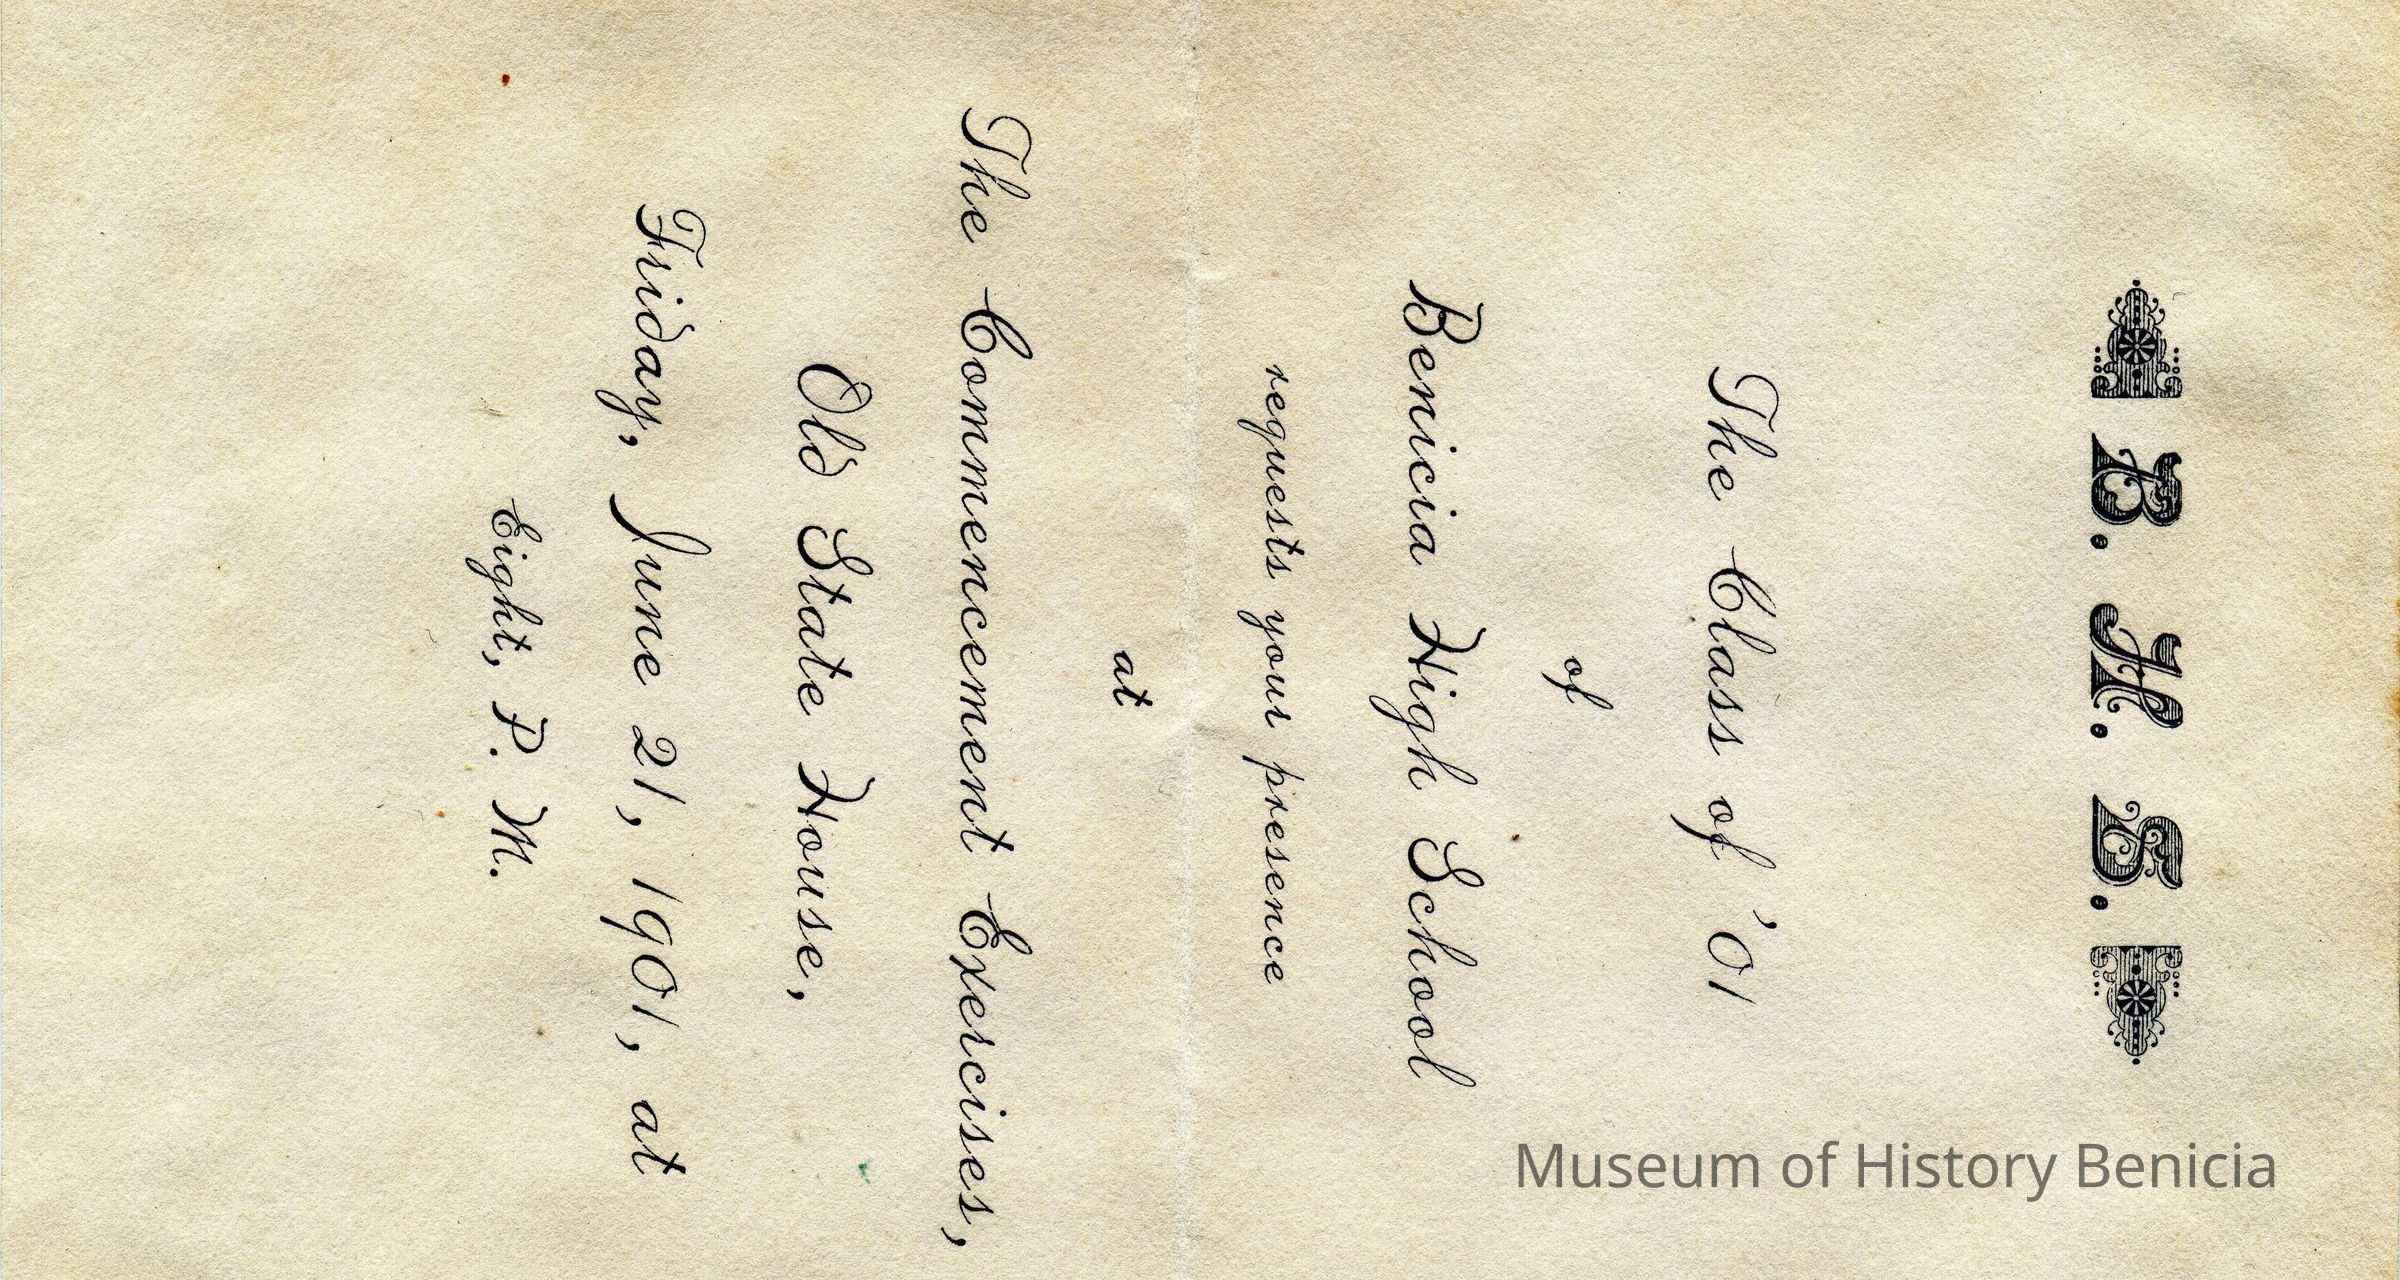 B. H. S.
The Class of '01
of
Benicia High School
requests your presence
at
The Commencement Exercises,
Old State House,
Friday, June 21, 1901, at
Eight, P. M.
Museum of History Benicia